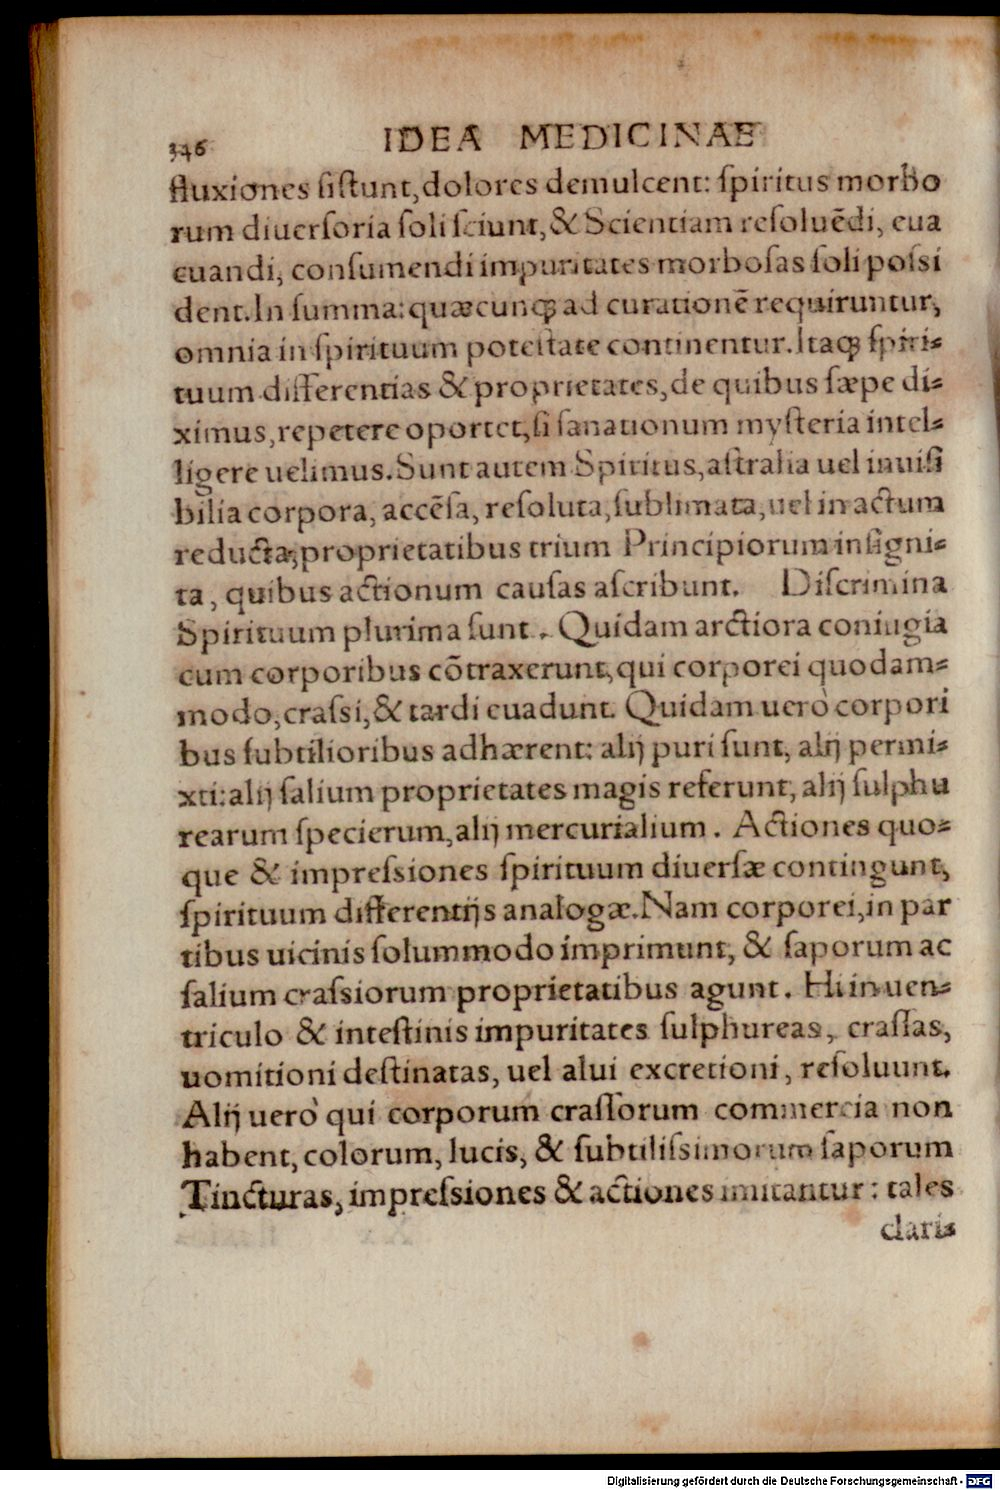 346 IDEA MEDICINAE
fluxiones ſiſtunt, dolores demulcent: ſpiritus morbo
rum diuerſoria ſoli ſciunt, & Scientiam reſoluēdi, eua
cuandi, conſumendi impuritates morboſas ſoli poſsi
dent. In ſumma: quæcunq̃ ad curationē requiruntur,
omnia in ſpirituum poteſtate continentur. Itaq̃ ſpiri-
tuum differentias & proprietates, de quibus ſæpe di-
ximus, repetere oportet, ſi ſanationum myſteria intel-
ligere uelimus. Sunt autem Spiritus, aſtralia uel inuiſi
bilia corpora, accēſa, reſoluta, ſublimata, uel in actum
reducta, proprietatibus trium Principiorum inſigni-
ta, quibus actionum cauſas aſcribunt. Diſcrimina
Spirituum plurima ſunt. Quidam arctiora coniugia
cum corporibus cōtraxerunt, qui corporei quodam-
modo, craſsi, & tardi euadunt. Quidam uerò corpori
bus ſubtilioribus adhærent: alij puri ſunt, alij permi-
xti: alij ſalium proprietates magis referunt, alij ſulphu
rearum ſpecierum, alij mercurialium. Actiones quo-
que & impreſsiones ſpirituum diuerſæ contingunt,
ſpirituum differentijs analogæ. Nam corporei, in par
tibus uicinis ſolummodo imprimunt, & ſaporum ac
ſalium craſsiorum proprietatibus agunt. Hi in uen-
triculo & inteſtinis impuritates ſulphureas, craſſas,
uomitioni deſtinatas, uel alui excretioni, reſoluunt.
Alij uerò qui corporum craſſorum commercia non
habent, colorum, lucis, & ſubtiliſsimorum ſaporum
Tincturas, impreſsiones & actiones imitantur: tales
clari-
Digitalisierung gefördert durch die Deutsche Forschungsgemeinschaft - DFG